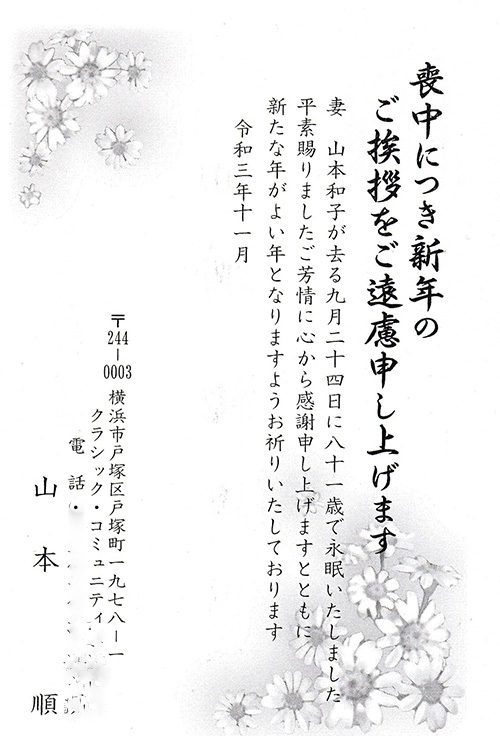 喪中につき新年の
ご挨拶をご遠慮申し上げます
妻 山本和子が去る九月二十四日に八十一歳で永眠いたしました
平素賜りましたご芳情に心から感謝申し上げますとともに
新たな年がよい年となりますようお祈りいたしております
令和三年十一月
〒244-0003 横浜市戸塚区戸塚町一九七八-一
クラシック・コミュニティ
電話・
山本 順